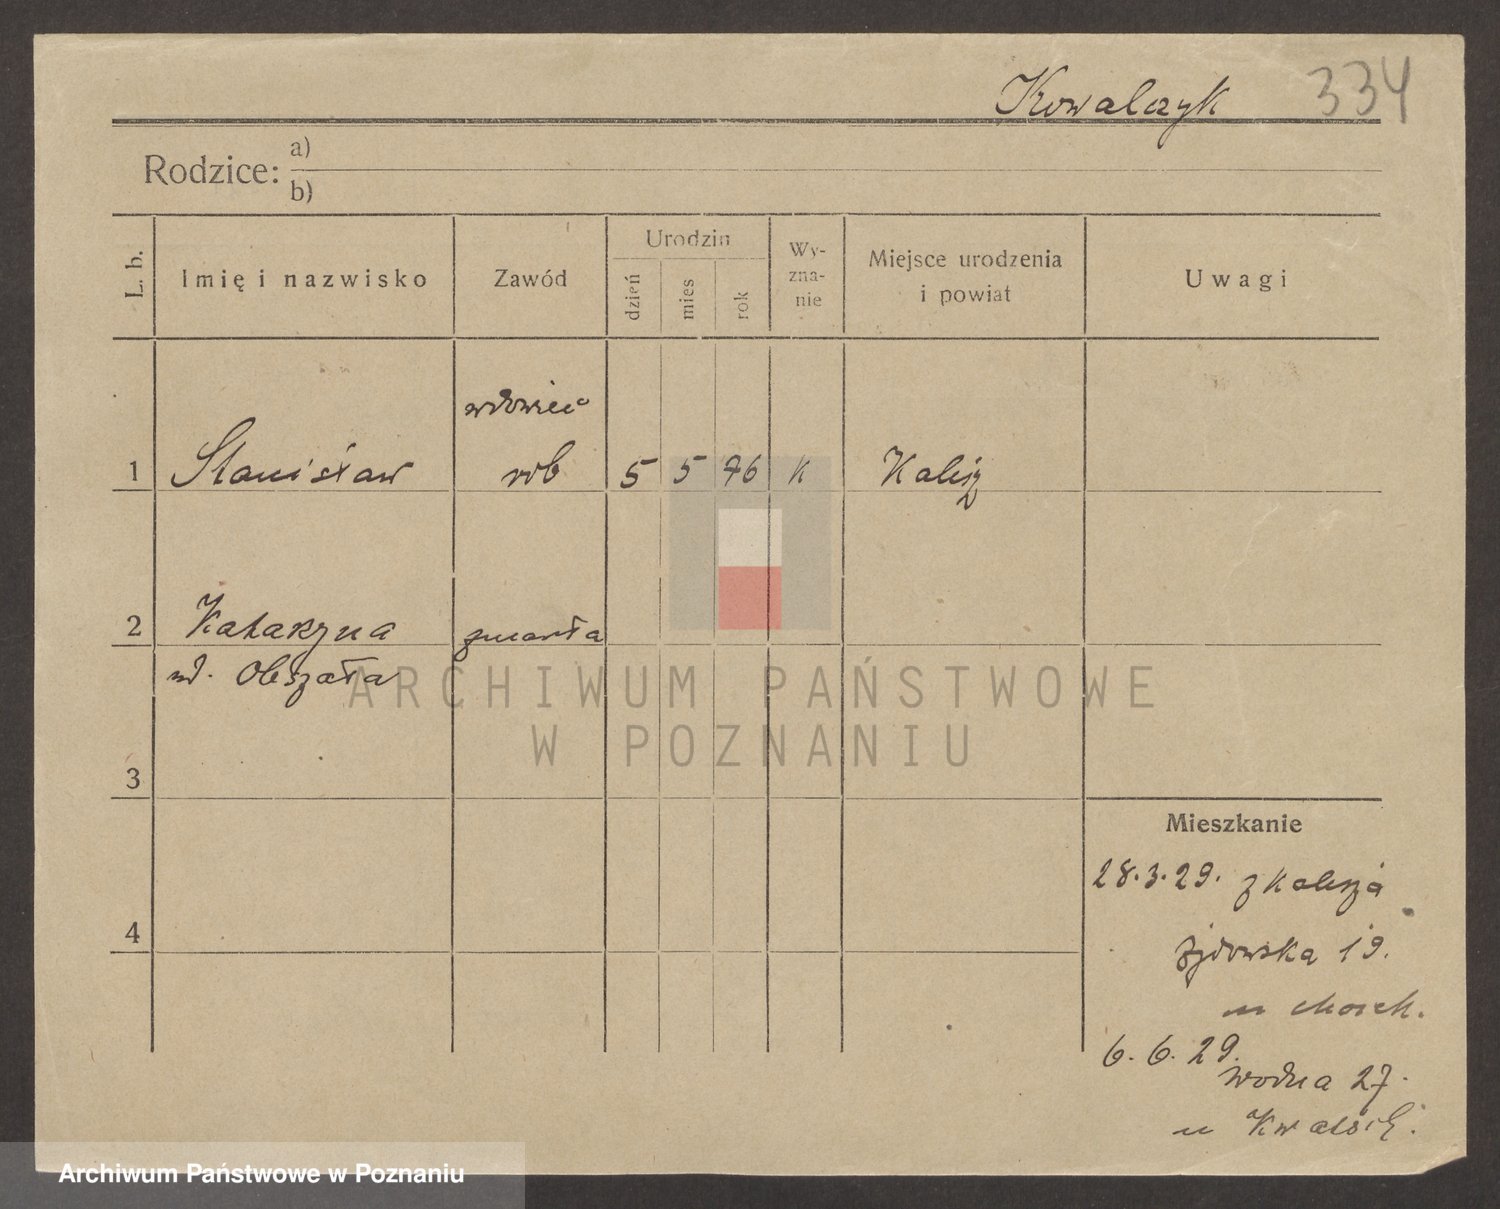 Kowalczyk 334
Rodzice: a)
b)
L. b. Imię i nazwisko Zawód Urodzin dzień mies rok Wy-zna-nie Miejsce urodzenia i powiat Uwagi
wdowiec
1 Stanisław rob 5 5 76 K Kalisz
2 Katarzyna zmarła
ur. Obszała
ARCHIWUM PAŃSTWOWE
W POZNANIU
3
Mieszkanie
28.3.29. z Kalisza
4
Żydowska 19.
u
6.6.29.
Wodna 27.
u
Archiwum Państwowe w Poznaniu